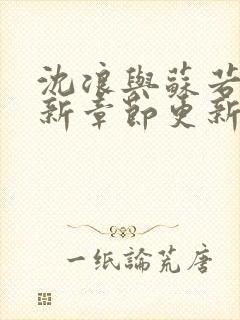 沈浪與蘇若
新章節更新
一纸論荒唐